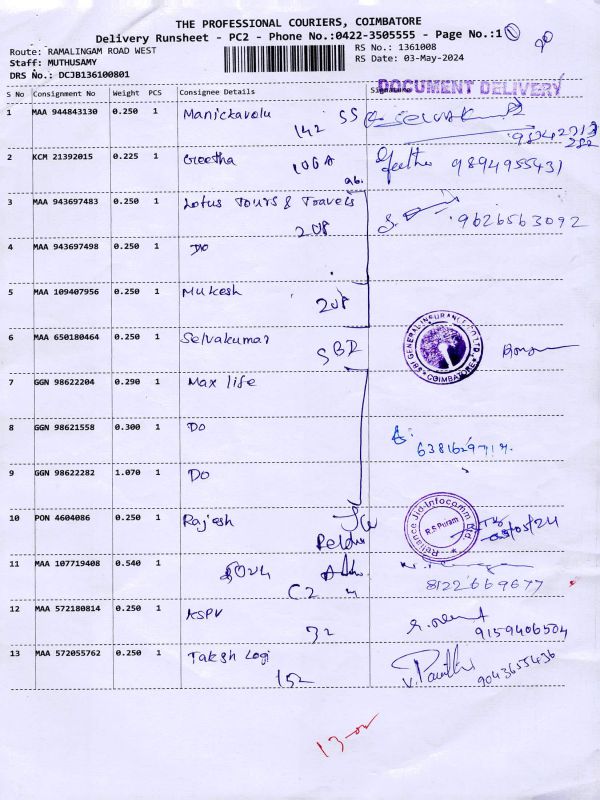 THE PROFESSIONAL COURIERS, COIMBATORE
Delivery Runsheet - PC2 - Phone No.:0422-3505555 - Page No.:1 1
Route: RAMALINGAM ROAD WEST RS No.: 1361008
Staff: MUTHUSAMY RS Date: 03-May-2024
DRS No.: DCJB136100801
DOCUMENT DELIVERY
S No Consignment No Weight PCS Consignee Details Signature
1 MAA 944843130 0.250 1 Manickavelu 142 SS SELVAK
2 KCM 21392015 0.225 1 Geetha 106A Geetha 9894955431
3 MAA 943697483 0.250 1 Lotus Tours & Travels 208 9626563092
4 MAA 943697498 0.250 1 DO
5 MAA 109407956 0.250 1 Mukesh 208
6 MAA 650180464 0.250 1 Selvakumar SBI
SBI GENERAL INSURANCE CO LTD. COIMBATORE
7 GGN 98622204 0.290 1 Max life
8 GGN 98621558 0.300 1 DO
9 GGN 98622282 1.070 1 DO
10 PON 4604086 0.250 1 Rajesh
Reliance Jio Infocomm Ltd. R.S Puram
11 MAA 107719408 0.540 1 C2 8122669677
12 MAA 572180814 0.250 1 KSPV 32 9159406504
13 MAA 572055762 0.250 1 Takesh Logi 152 9043655436